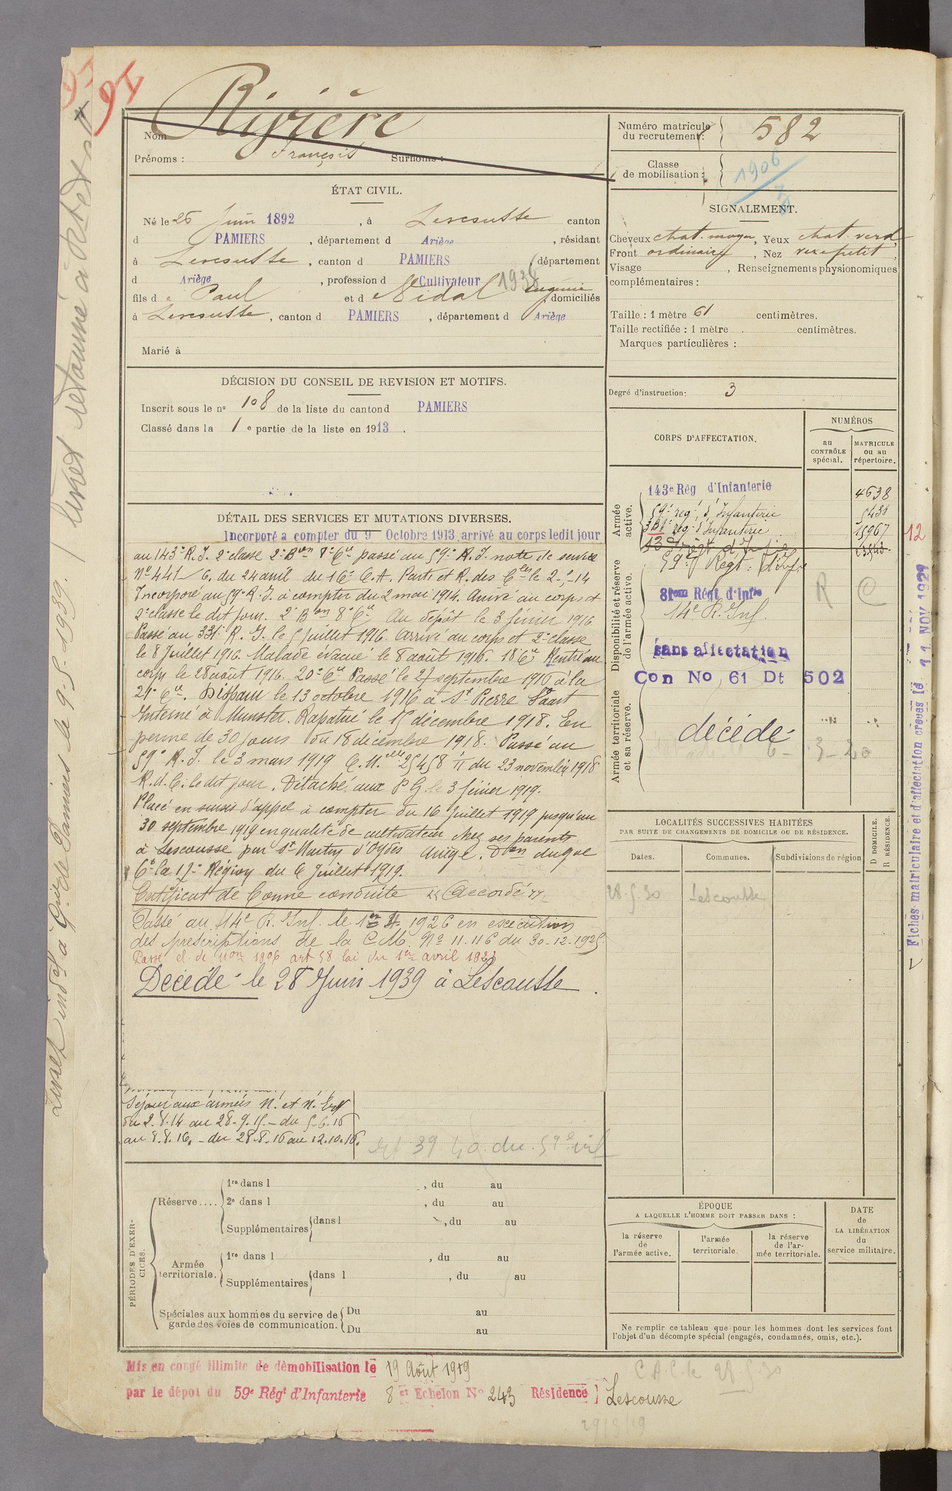 91
Rivière
Nom
Prénoms : François Surnoms :
ÉTAT CIVIL.
Né le 26 Juin 1892, à Lescousse canton
d PAMIERS, département d Ariège, résidant
à Lescousse, canton d PAMIERS département
d Ariège, profession d Cultivateur
fils d e Paul et d e Vidal Eugénie domiciliés
à Lescousse, canton d PAMIERS, département d Ariège
Marié à
DÉCISION DU CONSEIL DE REVISION ET MOTIFS.
Inscrit sous le n° 108 de la liste du canton d PAMIERS
Classé dans la 1e partie de la liste en 1913.
DÉTAIL DES SERVICES ET MUTATIONS DIVERSES.
Incorporé a compter du 9 Octobre 1913, arrivé au corps ledit jour
au 143e R. I. 2e classe 2e Bon Cie passé au 59e R. I. note de service
No 441 /6, du 24 avril du 16e C. A. Parti et R. des Cles le 2-5-14
Incorporé au 59e R. I. à compter du 2 mai 1914. Arrivé au corps et
2e classe le dit jour. 2e Bon 8e Cie Au Dépôt le 3 février 1916
Passé au R. I. le 5 juillet 1916. Arrivé au corps et 2e classe
le 8 Juillet 1916. Malade évacué le 8 août 1916. 18e Cie Rentré au
corps le 28 août 1916. 20e Cie Passé le septembre 1916 à la
21e Cie. Disparu le 13 octobre 1916 à St Pierre Vaast
Interné à Munster. Rapatrié le décembre 1918. En
perme de 30 jours du 18 décembre 1918. Passé au
59e R. I. le 3 mars 1919 C. M. 25458 du 23 novembre 1918
R. d. C. le dit jour. Détaché aux P G le 3 février 1919.
Placé en sursis d'appel à compter du 16 Juillet 1919 jusqu'au
30 septembre 1919 en qualité de cultivateur chez ses parents
à Lescousse par St Martin d'Oydes Ariège. Don du Gal
Ct la 17e Région du 6 juillet 1919.
Certificat de bonne conduite "Accordé"
Passé au 14e R. Inf. le 1er 1926 en exécution
des prescriptions de la C.M. No 11.116 du 30-12-1925
Passé cl. de mon 1906 art 58 loi du 1er avril 1923
Décédé le 28 Juin 1939 à Lescousse.
Séjour aux armées N. et N. Est
du 2.8.14 au 28.9.15 - du 5.6.16
au 8.8.16 - du 28.8.16 au 12.10.16.
PÉRIODES D'EXERCICE.
Réserve.... 1re dans l , du au
2e dans l , du au
Supplémentaires dans l , du au
Armée territoriale. 1re dans l , du au
Supplémentaires dans l , du au
Spéciales aux hommes du service de garde des voies de communication. Du au
Du au
Mis en congé illimité de démobilisation le 19 Août 1919
par le dépôt du 59e Régt d'Infanterie 8e Echelon No 243 Résidence Lescousse
Numéro matricule du recrutement : 582
Classe de mobilisation : 1906
SIGNALEMENT.
Cheveux chat. moyen, Yeux chat. verd
Front ordinaire, Nez petit
Visage , Renseignements physionomiques
complémentaires :
Taille : 1 mètre 61 centimètres.
Taille rectifiée : 1 mètre . centimètres.
Marques particulières :
Degré d'instruction: 3
CORPS D'AFFECTATION.
NUMÉROS
au CONTRÔLE spécial.
MATRICULE ou au répertoire.
Armée active.
143e Rég d'Infanterie 4638
59e rég. d'Infanterie
rég. d'Infanterie 15967
Disponibilité et réserve de l'armée active.
59e Regt. d'Inf.
R C
81em Régt d'Infie
14e R. Inf.
sans affectation
Con No 61 Dt 502
Armée territoriale et sa réserve.
décédé
LOCALITÉS SUCCESSIVES HABITÉES
PAR SUITE DE CHANGEMENTS DE DOMICILE OU DE RÉSIDENCE.
Dates. Communes. Subdivisions de région
D DOMICILE. R RÉSIDENCE.
28-5-30 Lescousse
ÉPOQUE
A LAQUELLE L'HOMME DOIT PASSER DANS :
la réserve de l'armée active.
l'armée territoriale.
la réserve de l'armée territoriale.
DATE DE LA LIBÉRATION du service militaire.
Ne remplir ce tableau que pour les hommes dont les services font
l'objet d'un décompte spécial (engagés, condamnés, omis, etc.).
12
Fiches matriculaire et d'affectation créées le 11 NOV 1929